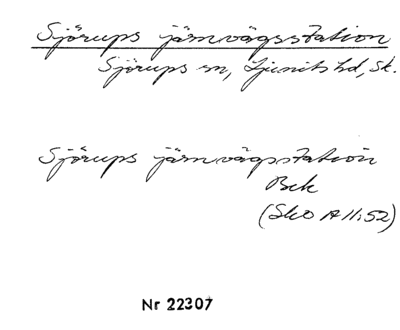 Sjörups järnvägsstation
Sjörups sn, Ljunits hd, Sk.
Sjörups järnvägsstation
Bek
(SkO A 11:52)
Nr 22307